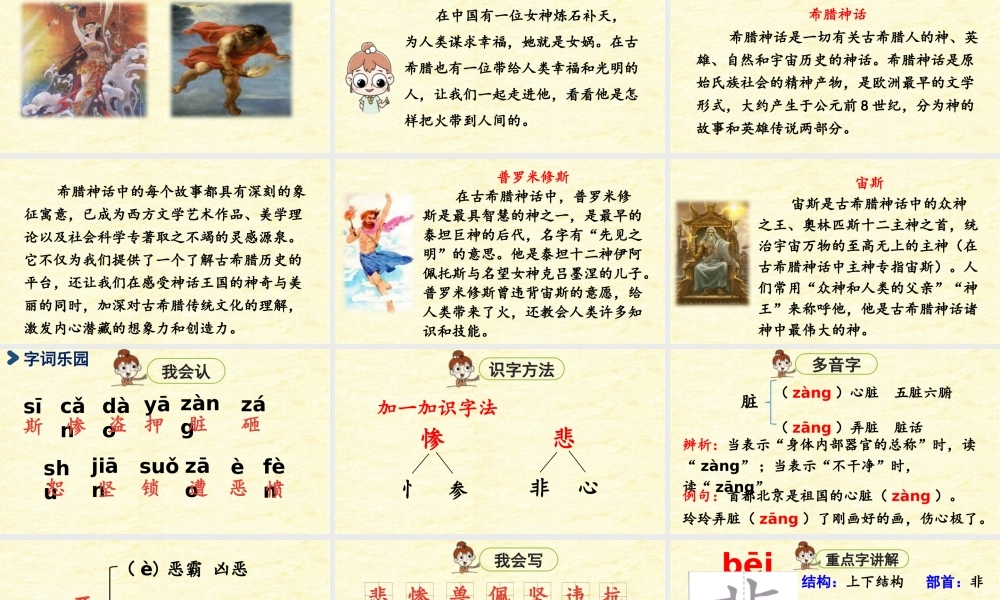 在中国有一位女神炼石补天，
为人类谋求幸福，她就是女娲。在古
希腊也有一位带给人类幸福和光明的
人，让我们一起走进他，看看他是怎
样把火带到人间的。
希腊神话
希腊神话是一切有关古希腊人的神、英
雄、自然和宇宙历史的神话。希腊神话是原
始氏族社会的精神产物，是欧洲最早的文学
形式，大约产生于公元前8世纪，分为神的
故事和英雄传说两部分。
希腊神话中的每个故事都具有深刻的象
征寓意，已成为西方文学艺术作品、美学理
论以及社会科学专著取之不竭的灵感源泉。
它不仅为我们提供了一个了解古希腊历史的
平台，还让我们在感受神话王国的神奇与美
丽的同时，加深对古希腊传统文化的理解，
激发内心潜藏的想象力和创造力。
普罗米修斯
在古希腊神话中，普罗米修
斯是最具智慧的神之一，是最早的
泰坦巨神的后代，名字有“先见之
明”的意思。他是泰坦十二神伊阿
佩托斯与名望女神克吕墨涅的儿子。
普罗米修斯曾违背宙斯的意愿，给
人类带来了火，还教会人类许多知
识和技能。
宙斯
宙斯是古希腊神话中的众神
之王、奥林匹斯十二主神之首，统
治宇宙万物的至高无上的主神（在
古希腊神话中主神专指宙斯）。人
们常用“众神和人类的父亲”“神
王”来称呼他，他是古希腊神话诸
神中最伟大的神。
字词乐园
我会认
sī cǎn dào yā zàng zá
斯 惨 盗 押 脏 砸
shù jiān suǒ zāo è fèn
恕 坚 锁 遭 恶 愤
识字方法
加一加识字法
惨 悲
忄 参 非 心
多音字
脏
（zàng）心脏 五脏六腑
（zāng）弄脏 脏话
辨析：当表示“身体内部器官的总称”时，读
“zàng”；当表示“不干净”时，
读“zāng”
例句：首都北京是祖国的心脏（zàng）。
玲玲弄脏（zāng）了刚画好的画，伤心极了。
（è）恶霸 凶恶
我会写
悲 惨 兽 佩 坚 违 抗
bēi
重点字讲解
结构：上下结构 部首：非